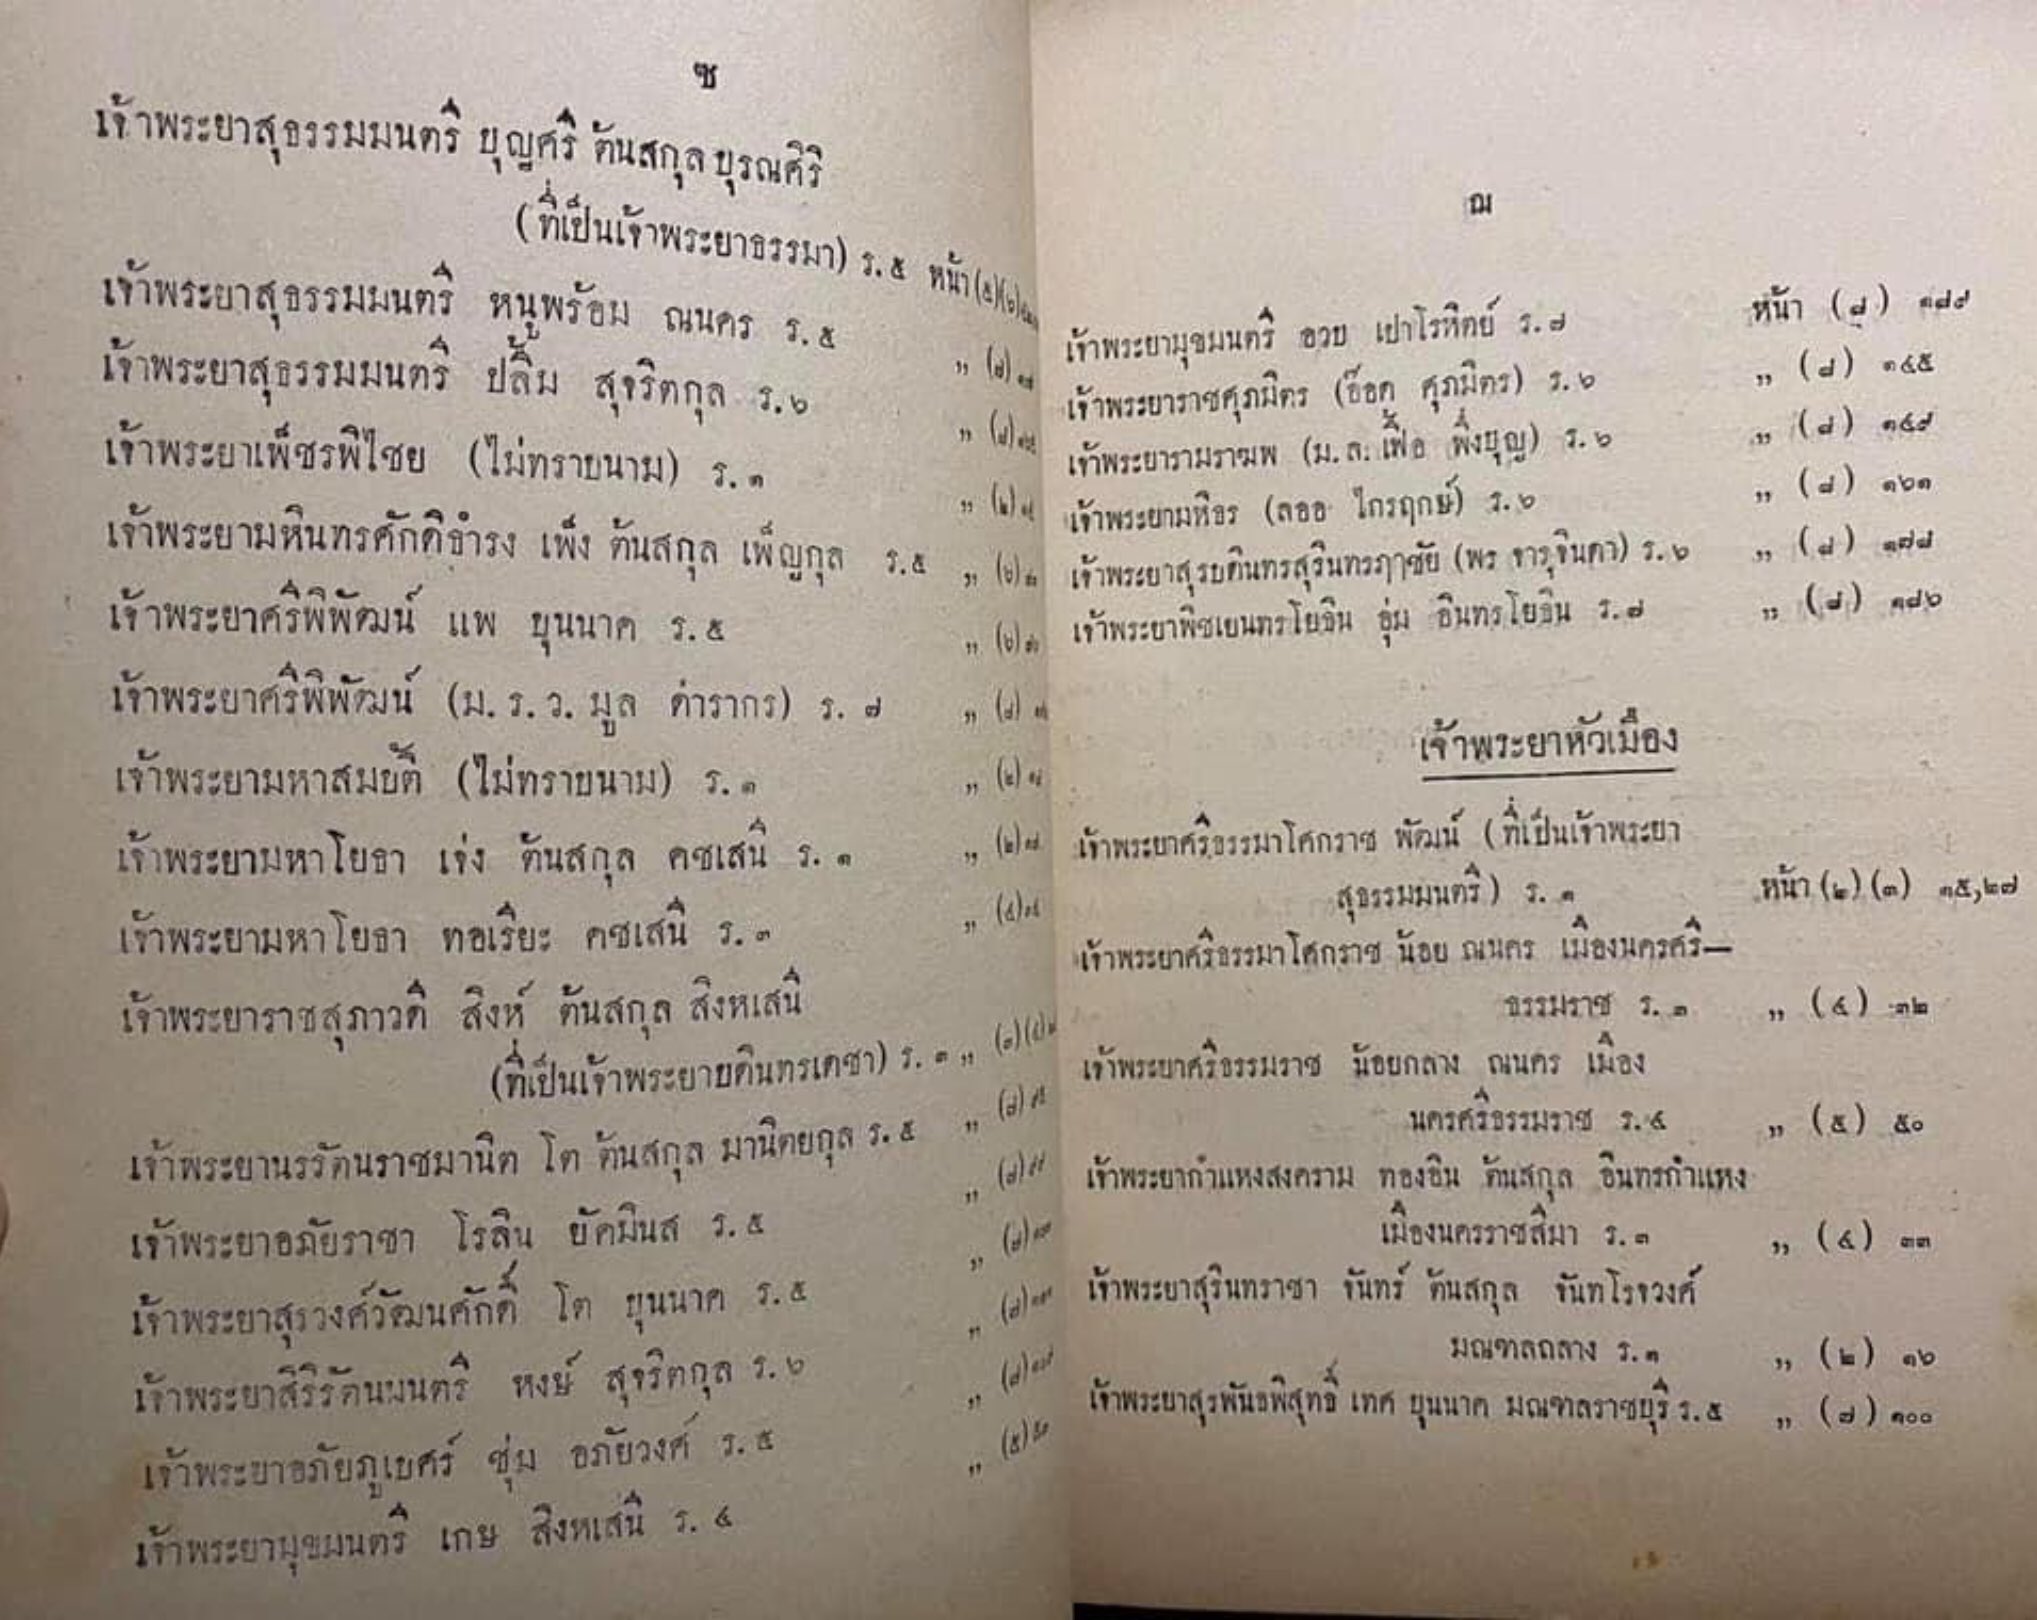 ซ
เจ้าพระยาสุธรรมมนตรี บุญศรี ต้นสกุล บุรณศิริ
(ที่เป็นเจ้าพระยาธรรมา) ร. ๕ หน้า (๕)(๖)
เจ้าพระยาสุธรรมมนตรี หนูพร้อม ณนคร ร. ๕ ,, (๗)
เจ้าพระยาสุธรรมมนตรี ปลื้ม สุจริตกุล ร. ๖ ,,
เจ้าพระยาเพ็ชรพิไชย (ไม่ทราบนาม) ร. ๑ ,, (๒)
เจ้าพระยามหินทรศักดิธำรง เพ็ง ต้นสกุล เพ็ญกุล ร. ๕ ,, (๖)
เจ้าพระยาศรีพิพัฒน์ แพ บุนนาค ร. ๕ ,, (๖)
เจ้าพระยาศรีพิพัฒน์ (ม. ร. ว. มูล ดารากร) ร. ๗ ,,
เจ้าพระยามหาสมบัติ (ไม่ทราบนาม) ร. ๑ ,, (๒)
เจ้าพระยามหาโยธา เจ่ง ต้นสกุล คชเสนี ร. ๑ ,, (๒)
เจ้าพระยามหาโยธา ทอเรียะ คชเสนี ร. ๓ ,, (๔)
เจ้าพระยาราชสุภาวดี สิงห์ ต้นสกุล สิงหเสนี
(ที่เป็นเจ้าพระยาบดินทรเดชา) ร. ๓ ,, (๓)(๔)
เจ้าพระยานรรัตนราชมานิต โต ต้นสกุล มานิตยกุล ร. ๕ ,, (๗)
เจ้าพระยาอภัยราชา โรลิน ยัคมินส ร. ๕ ,, (๗)
เจ้าพระยาสุรวงศ์วัฒนศักดิ์ โต บุนนาค ร. ๕ ,, (๗)
เจ้าพระยาสิริรัตนมนตรี หงษ์ สุจริตกุล ร. ๖ ,,
เจ้าพระยาอภัยภูเบศร์ ชุ่ม อภัยวงศ์ ร. ๕ ,, (๗)
เจ้าพระยามุขมนตรี เกษ สิงหเสนี ร. ๔ ,, (๕)
ฌ
เจ้าพระยามุขมนตรี อวบ เปาโรหิตย์ ร. ๗ หน้า (๘) ๑๘๙
เจ้าพระยาราชศุภมิตร (อ๊อด ศุภมิตร) ร. ๖ ,, (๘) ๑๔๕
เจ้าพระยารามราฆพ (ม. ล. เฟื้อ พึ่งบุญ) ร. ๖ ,, (๘) ๑๔๙
เจ้าพระยามหิธร (ลออ ไกรฤกษ์) ร. ๖ ,, (๘) ๑๖๑
เจ้าพระยาสุรบดินทรสุรินทรฦาชัย (พร จารุจินดา) ร. ๖ ,, (๘) ๑๗๘
เจ้าพระยาพิชเยนทรโยธิน อุ่ม อินทรโยธิน ร. ๗ ,, (๘) ๑๘๖
เจ้าพระยาหัวเมือง
เจ้าพระยาศรีธรรมาโศกราช พัฒน์ (ที่เป็นเจ้าพระยา
สุธรรมมนตรี) ร. ๑ หน้า (๒) (๓) ๑๕,๒๗
เจ้าพระยาศรีธรรมาโศกราช น้อย ณนคร เมืองนครศรี—
ธรรมราช ร. ๓ ,, (๔) ๓๒
เจ้าพระยาศรีธรรมราช น้อยกลาง ณนคร เมือง
นครศรีธรรมราช ร. ๔ ,, (๕) ๕๐
เจ้าพระยากำแหงสงคราม ทองอิน ต้นสกุล อินทรกำแหง
เมืองนครราชสีมา ร. ๓ ,, (๔) ๓๓
เจ้าพระยาสุรินทราชา จันทร์ ต้นสกุล จันทโรจวงศ์
มณฑลถลาง ร. ๑ ,, (๒) ๑๖
เจ้าพระยาสุรพันธพิสุทธิ์ เทศ บุนนาค มณฑลราชบุรี ร. ๕ ,, (๗) ๑๐๐